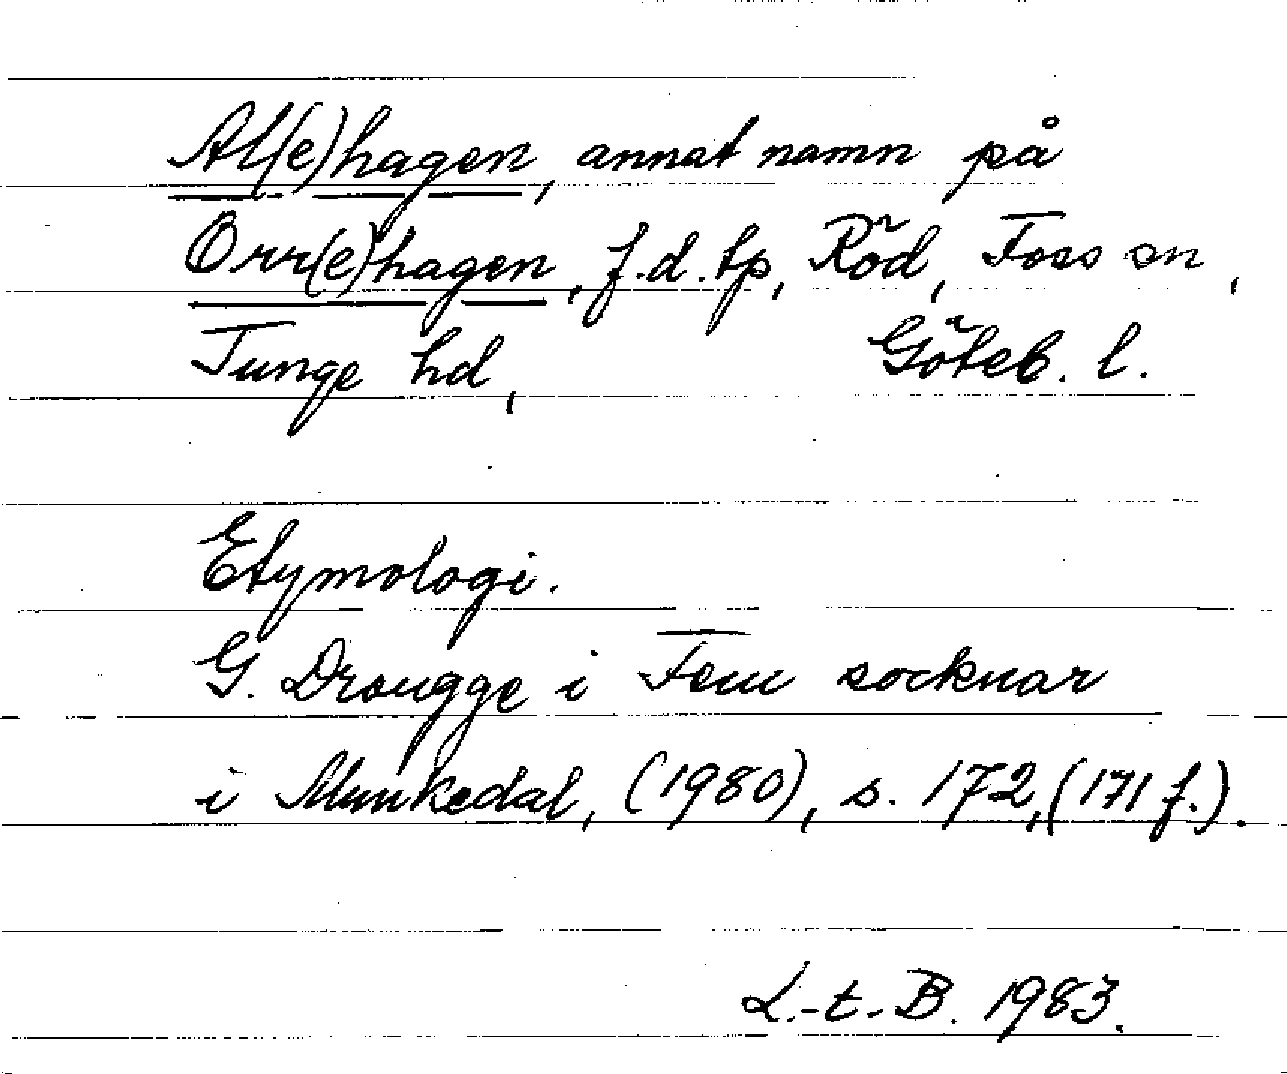 Al(e)hagen, annat namn på
Orr(e)hagen, f.d. tp, Röd, Foss sn,
Tunge hd, Göteb. l.
Etymologi.
G. Drougge i Fem socknar
i Munkedal, (1980), s. 172, (171 f.).
L.-t.-B. 1983.